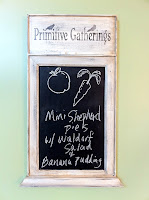 Primitive Gatherings
Mini Shepherd
pies
w/ Waldorf
Salad
&
Banana Pudding